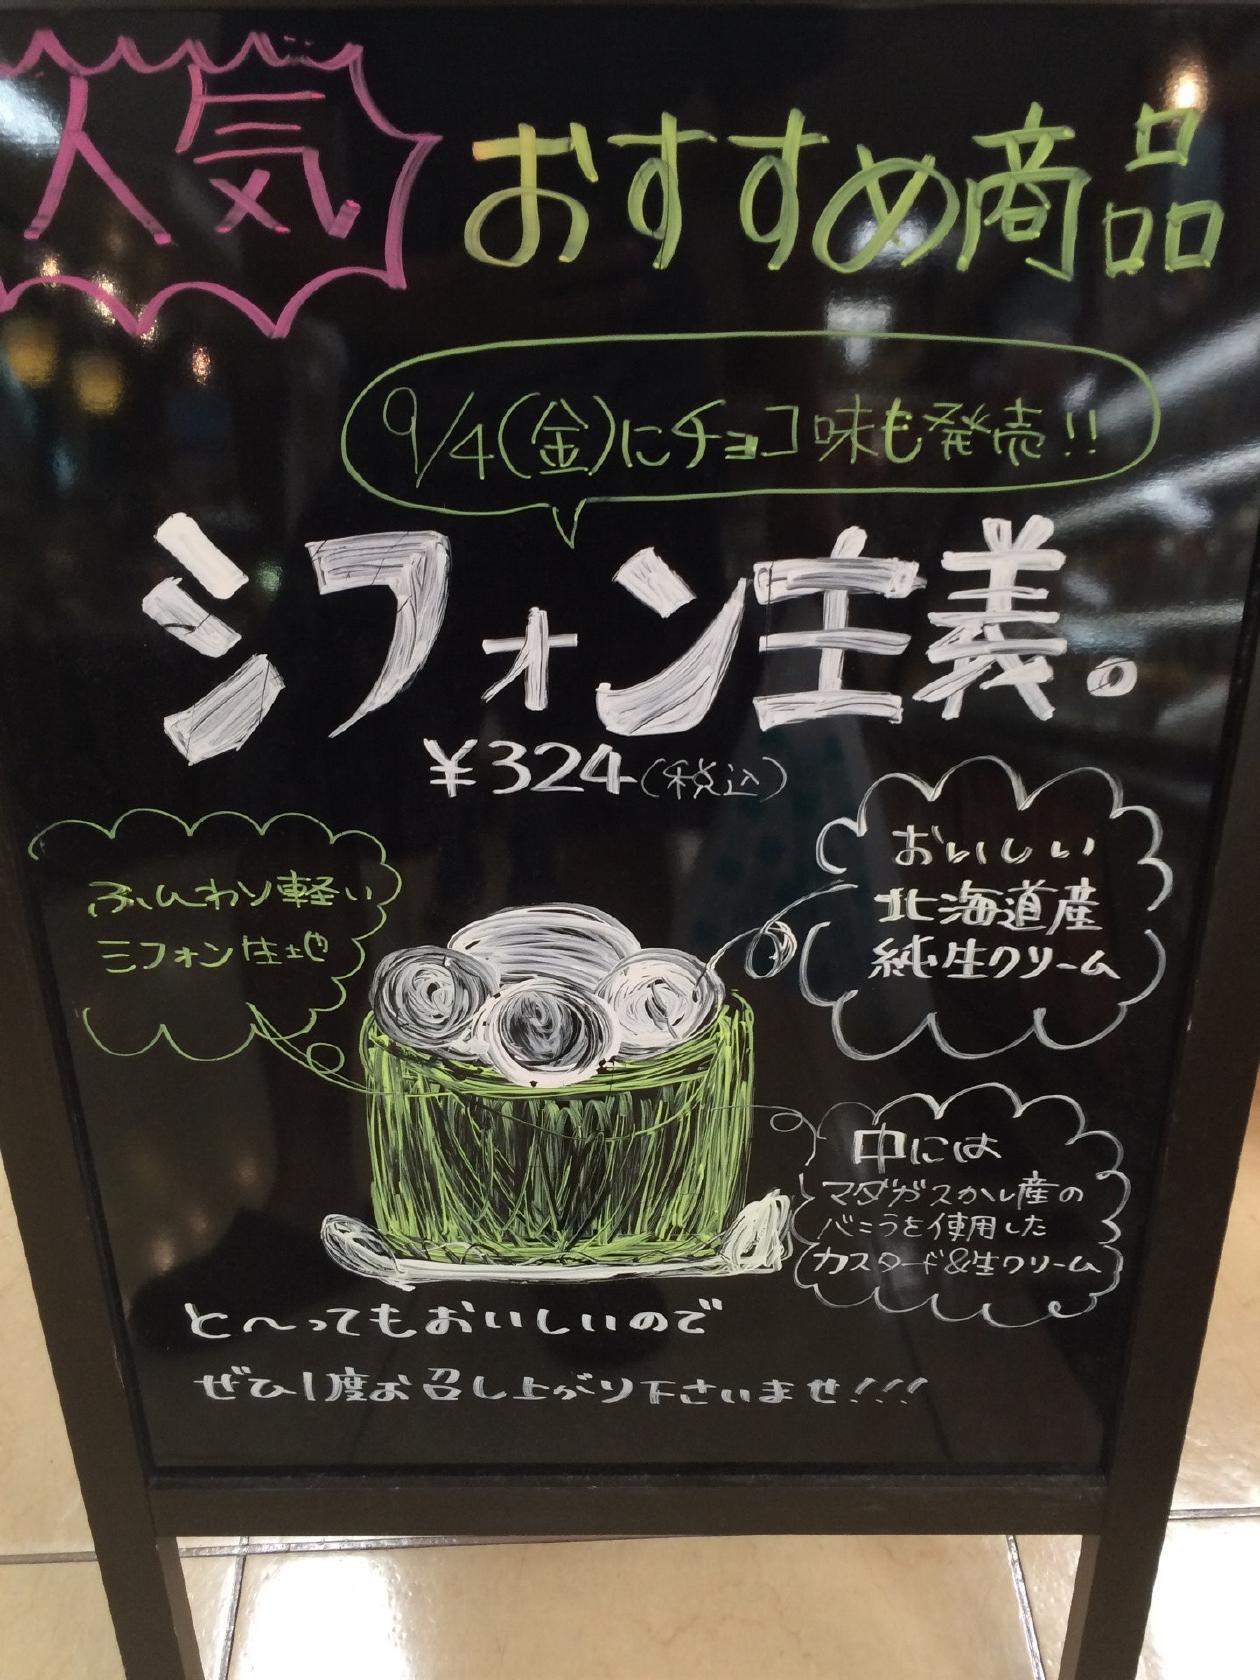 人気
おすすめ商品
9/4(金)にチョコ味も発売!!
シフォン主義。
¥324(税込)
ふんわり軽い
シフォン生地
おいしい
北海道産
純生クリーム
中には
マダガスカル産の
バニラを使用した
カスタード&生クリーム
と〜ってもおいしいので
ぜひ1度お召し上がり下さいませ!!!